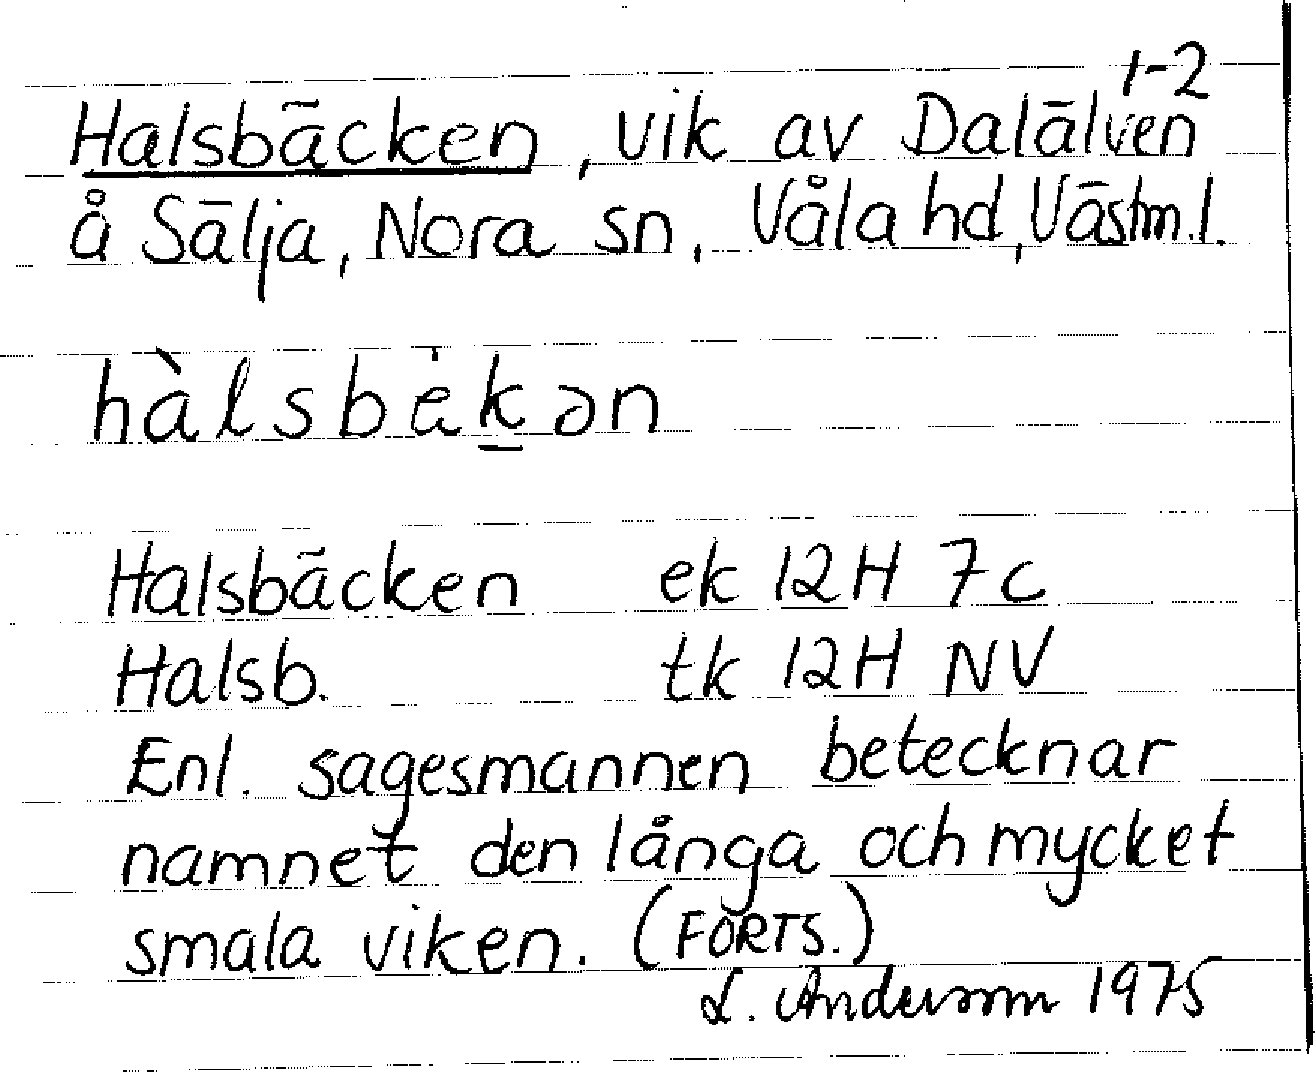 1-2
Halsbäcken, vik av Dalälven
å Sälja, Nora sn, Våla hd, Västm.l.
hàlsbėk̠ən
Halsbäcken ek 12H 7c
Halsb. tk 12H NV
Enl. sagesmannen betecknar
namnet den långa och mycket
smala viken. (FORTS.)
L. Andersson 1975